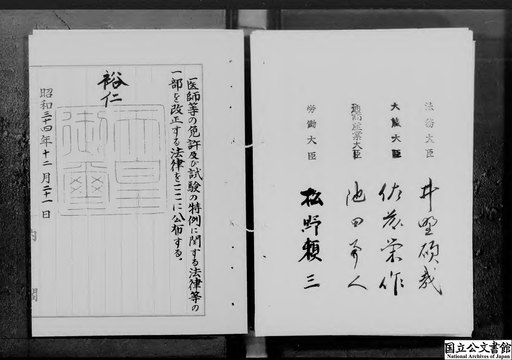 医師等の免許及び試験の特例に関する法律等の
一部を改正する法律をここに公布する。
裕仁
天皇
御璽
昭和三十四年十二月二十一日
内閣
法務大臣 井野碩哉
大蔵大臣 佐藤栄作
通商産業大臣 池田勇人
労働大臣 松野頼三
国立公文書館
National Archives of Japan